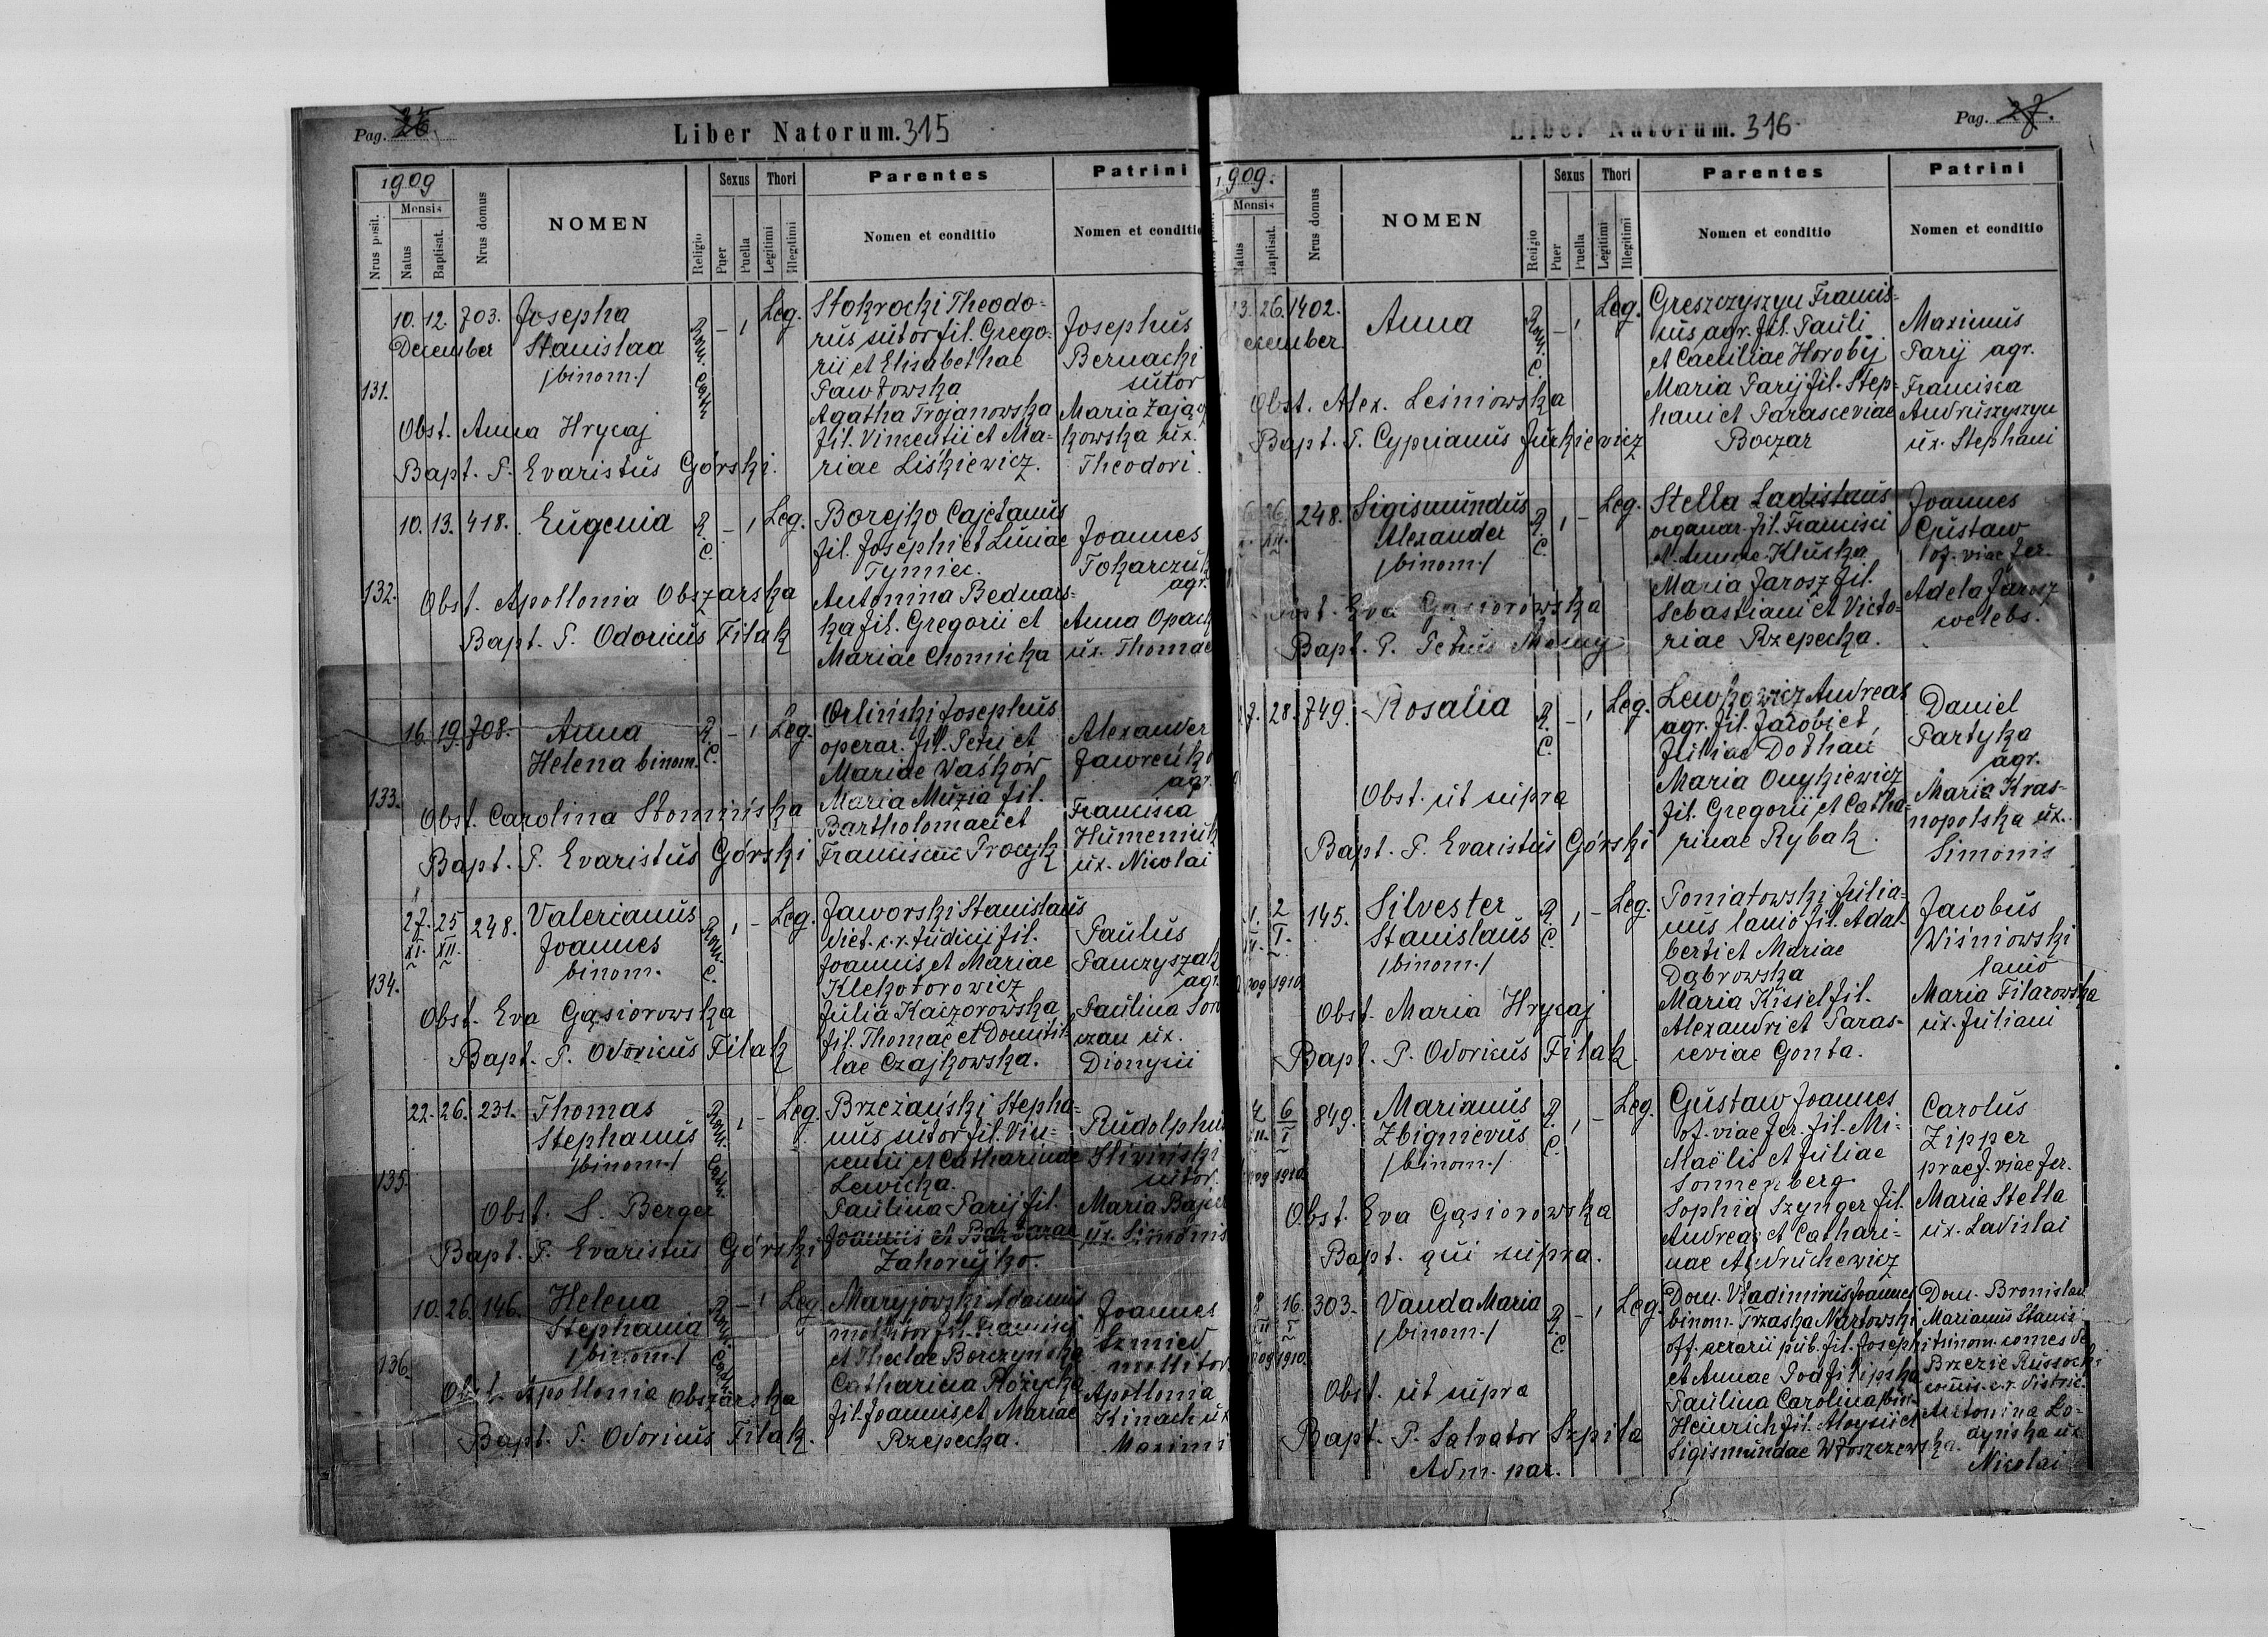 Pag. 26.
Liber Natorum. 315
1909
Nrus posit.
Mensis
Natus
Baptisat.
Nrus domus
NOMEN
Religio
Sexus
Puer
Puella
Thori
Legitimi
Illegitimi
Parentes
Nomen et conditio
Patrini
Nomen et conditio
131.
10. 12. 703.
December
Josepha
Stanislaa
/binom./
Rom. Cath
- 1 Leg.
Obst. Anna Hrycaj
Bapt. P. Evaristus Górski.
Stokrocki Theodo-
rus sutor fil. Grego-
rii et Elisabethae
Pawłowska
Agatha Trojanowska
fil. Vincentii et Ma-
riae Liśkiewicz.
Josephus
Bernacki
sutor
Maria Zając
kowska ux.
Theodori.
132.
10. 13. 418. Eugenia R. C. - 1 Leg.
Obst. Apollonia Obszarska
Bapt. P. Odoricus Filak
Borejko Cajetanus
fil. Josephi et Luciae
Tymiec.
Antonina Bednars-
ka fil. Gregorii et
Mariae Chomicka
Joannes
Tokarczuk
agr.
Anna Opack
ux. Thomae
133.
16. 19. 708. Anna
Helena binom.
R. C. - 1 Leg.
Obst. Carolina Słomińska
Bapt. P. Evaristus Górski
Orliński Josephus
operar. fil. Petri et
Mariae Waśków
Maria Muzia fil.
Bartholomaei et
Franciscae Procyk
Alexander
Jawreńko
agr.
Francisca
Humeniuk
ux. Nicolai
134.
27. 25
XI. XII.
248. Valerianus
Joannes
binom.
Rom. C. 1 - Leg.
Obst. Eva Gąsiorowska
Bapt. P. Odoricus Filak
Jaworski Stanislaus
diet. c. r. judicii fil.
Joannis et Mariae
Klekotorowicz
Julia Kaczorowska
fil. Thomae et Domitil-
lae Czajkowska.
Paulus
Panczyszak
agr.
Paulina Son
czan ux.
Dionysii
135.
22. 26. 231. Thomas
Stephanus
/binom./
Rom. Cath. 1 - Leg.
Obst. S. Berger
Bapt. P. Evaristus Górski
Brzeżański Stepha-
nus sutor fil. Vin-
centii et Catharinae
Lewicka.
Paulina Parij fil.
Joannis et Barbarae
Zahorujko.
Rudolphus
Śliwiński
sutor.
Maria
ux. Simonis
136.
10. 26. 146. Helena
Stephania
/binom./
Rom. Cath. - 1 Leg
Obst. Apollonia Obszarska
Bapt. P. Odoricus Filak.
Maryjowski Adamus
molitor fil. Francisci
et Theclae Borczyńska
Catharina Różycka
fil. Joannis et Mariae
Rzepecka.
Joannes
Szmied
mollitor.
Apollonia
Kinach ux
Maximi
Liber Natorum. 316.
Pag. 27.
1909.
Mensis
Natus
Baptisat.
Nrus domus
NOMEN
Religio
Sexus
Puer
Puella
Thori
Legitimi
Illegitimi
Parentes
Nomen et conditio
Patrini
Nomen et conditio
13. 26. 1402.
ecember
Anna
Rom. C. - 1 Leg.
Obst. Alex. Leśniowska
Bapt. P. Cyprianus Jurkiewicz
Greszczyszyn Francis-
cus agr. fil. Pauli
et Caeciliae Horobij
Maria Parij fil. Step-
hani et Parasceviae
Boczar
Maximus
Parij agr.
Francisca
Andruszyszyn
ux. Stephani
26.
XII.
248. Sigismundus
Alexander
/binom./
R. C. 1 - Leg.
Obst. Eva Gąsiorowska
Bapt. P. Petrus
Stella Ladislaus
organar. fil. Francisci
et Annae Kluska
Maria Jarosz fil.
Sebastiani et Victo-
riae Rzepecka.
Joannes
Gustaw
of. viae fer.
Adela Jarosz
coelebs.
7. 28. 749. Rosalia R. C. - 1 Leg.
Obst. ut supra
Bapt. P. Evaristus Górski
Lewkowicz Andreas
agr. fil. Jacobi et
Juliae Dołhań
Maria Onykiewicz
fil. Gregorii et Catha-
rinae Rybak.
Daniel
Partyka
agr.
Maria Kras-
nopolska ux.
Simonis
31. 2
XII. I.
909 1910
145. Silvester
Stanislaus
/binom./
R. C. 1 - Leg.
Obst. Maria Hrycaj
Bapt. P. Odoricus Filak.
Poniatowski Julia-
nus lanio fil. Adal-
berti et Mariae
Dąbrowska
Maria Kisiel fil.
Alexandri et Paras-
ceviae Gonta.
Jacobus
Wiśniowski
lanio
Maria Filarowska
ux. Juliani
6
I
909 1910.
849. Marianus
Zbignievus
/binom./
R. C. 1 - Leg.
Obst. Eva Gąsiorowska
Bapt. qui supra.
Gustaw Joannes
of. viae fer. fil. Mi-
chaëlis et Juliae
Sonnenberg
Sophia Szynger fil.
Andreae et Cathari-
nae Andruchewicz
Carolus
Zipper
praef. viae fer.
Maria Stella
ux. Ladislai
8 16.
XII I
909 1910.
303. Vanda Maria
/binom./
R. C. - 1 Leg.
Obst. ut supra
Bapt. P. Salvator Szpila
Adm. par.
Dom. Vladimirus Joannes
binom. Trzaska Nartowski
off. aerarii pub. fil. Josephi
et Annae Podfilipska
Paulina Carolina /bin.
Heinrich fil. Aloysii et
Sigismundae Włoszczewska.
Dom. Bronislaus
Marianus Stanis.
trinom. comes de
Brzezie Russocki
comis. c. r. district.
Antonina Lo-
dyńska ux.
Nicolai